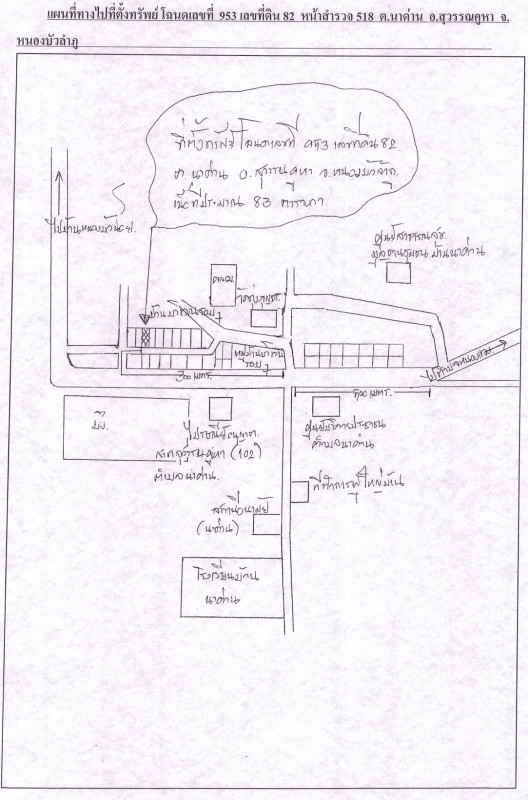 แผนที่ทางไปที่ตั้งทรัพย์ โฉนดเลขที่ 953 เลขที่ดิน 82 หน้าสำรวจ 518 ต.นาด่าน อ.สุวรรณคูหา จ.
หนองบัวลำภู
ที่ตั้งทรัพย์ โฉนดเลขที่ 953 เลขที่ดิน 82
ต. นาด่าน อ. สุวรรณคูหา จ.หนองบัวลำภู
เนื้อที่ประมาณ 83 ตารางวา
ศูนย์สาธารณสุข
มูลฐานชุมชน บ้านนาด่าน
ตลาด
300 เมตร
500 เมตร
ไปรษณีย์อนุญาต
สาขาสุวรรณคูหา (102)
ตำบลนาด่าน
ศูนย์บริการประชาชน
ตำบลนาด่าน
ที่ทำการผู้ใหญ่บ้าน
สถานีอนามัย
(นาด่าน)
โรงเรียนบ้าน
นาด่าน